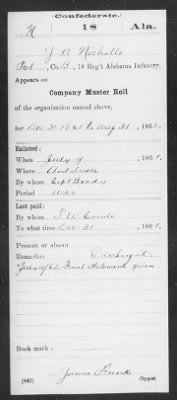 Confederate.
N 18 Ala.
J. A. Nicholls
Pvt, Co. B., 18 Reg't Alabama Infantry.
Appears on
Company Muster Roll
of the organization named above,
for Dec 31 1861 to Aug 31, 1862.
Enlisted:
When July 9, 186
Where
By whom Capt
Period War
Last paid:
By whom
To what time Dec 31, 186
Present or absent
Remarks: Discharged
Final Statement given
Book mark:
James
(642) Copyist.